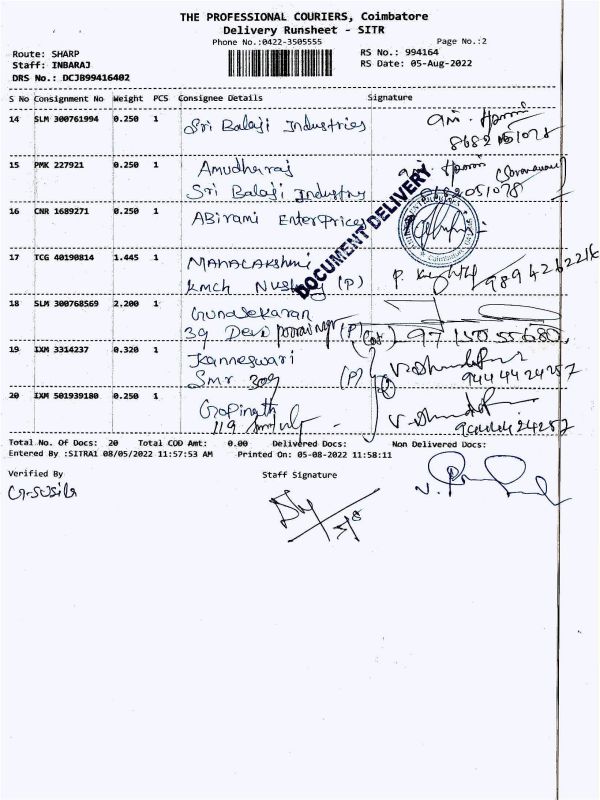 THE PROFESSIONAL COURIERS, Coimbatore
Delivery Runsheet - SITR
Phone No.:0422-3505555
Page No.:2
Route: SHARP
RS No.: 994164
Staff: INBARAJ
RS Date: 05-Aug-2022
DRS No.: DCJB99416402
S No Consignment No Weight PCS Consignee Details Signature
14 SLM 300761994 0.250 1 Sri Balaji Industries
15 PMK 227921 0.250 1 Amudharaj
Sri Balaji Industry
16 CNR 1689271 0.250 1 ABirami Enterprices
DOCUMENT DELIVERY
17 TCG 40190814 1.445 1 MAHALAKSHMI
kmch (P)
18 SLM 300768569 2.200 1 Gunasekaran
39 (P) 97150 55680
19 IXM 3314237 0.320 1 Kanneswari
Smr 309 (P) 9444424257
20 IXM 501939180 0.250 1 Gopinath
119
Total No. Of Docs: 20 Total COD Amt: 0.00 Delivered Docs: Non Delivered Docs:
Entered By :SITRA1 08/05/2022 11:57:53 AM Printed On: 05-08-2022 11:58:11
Verified By
Staff Signature
G-susila